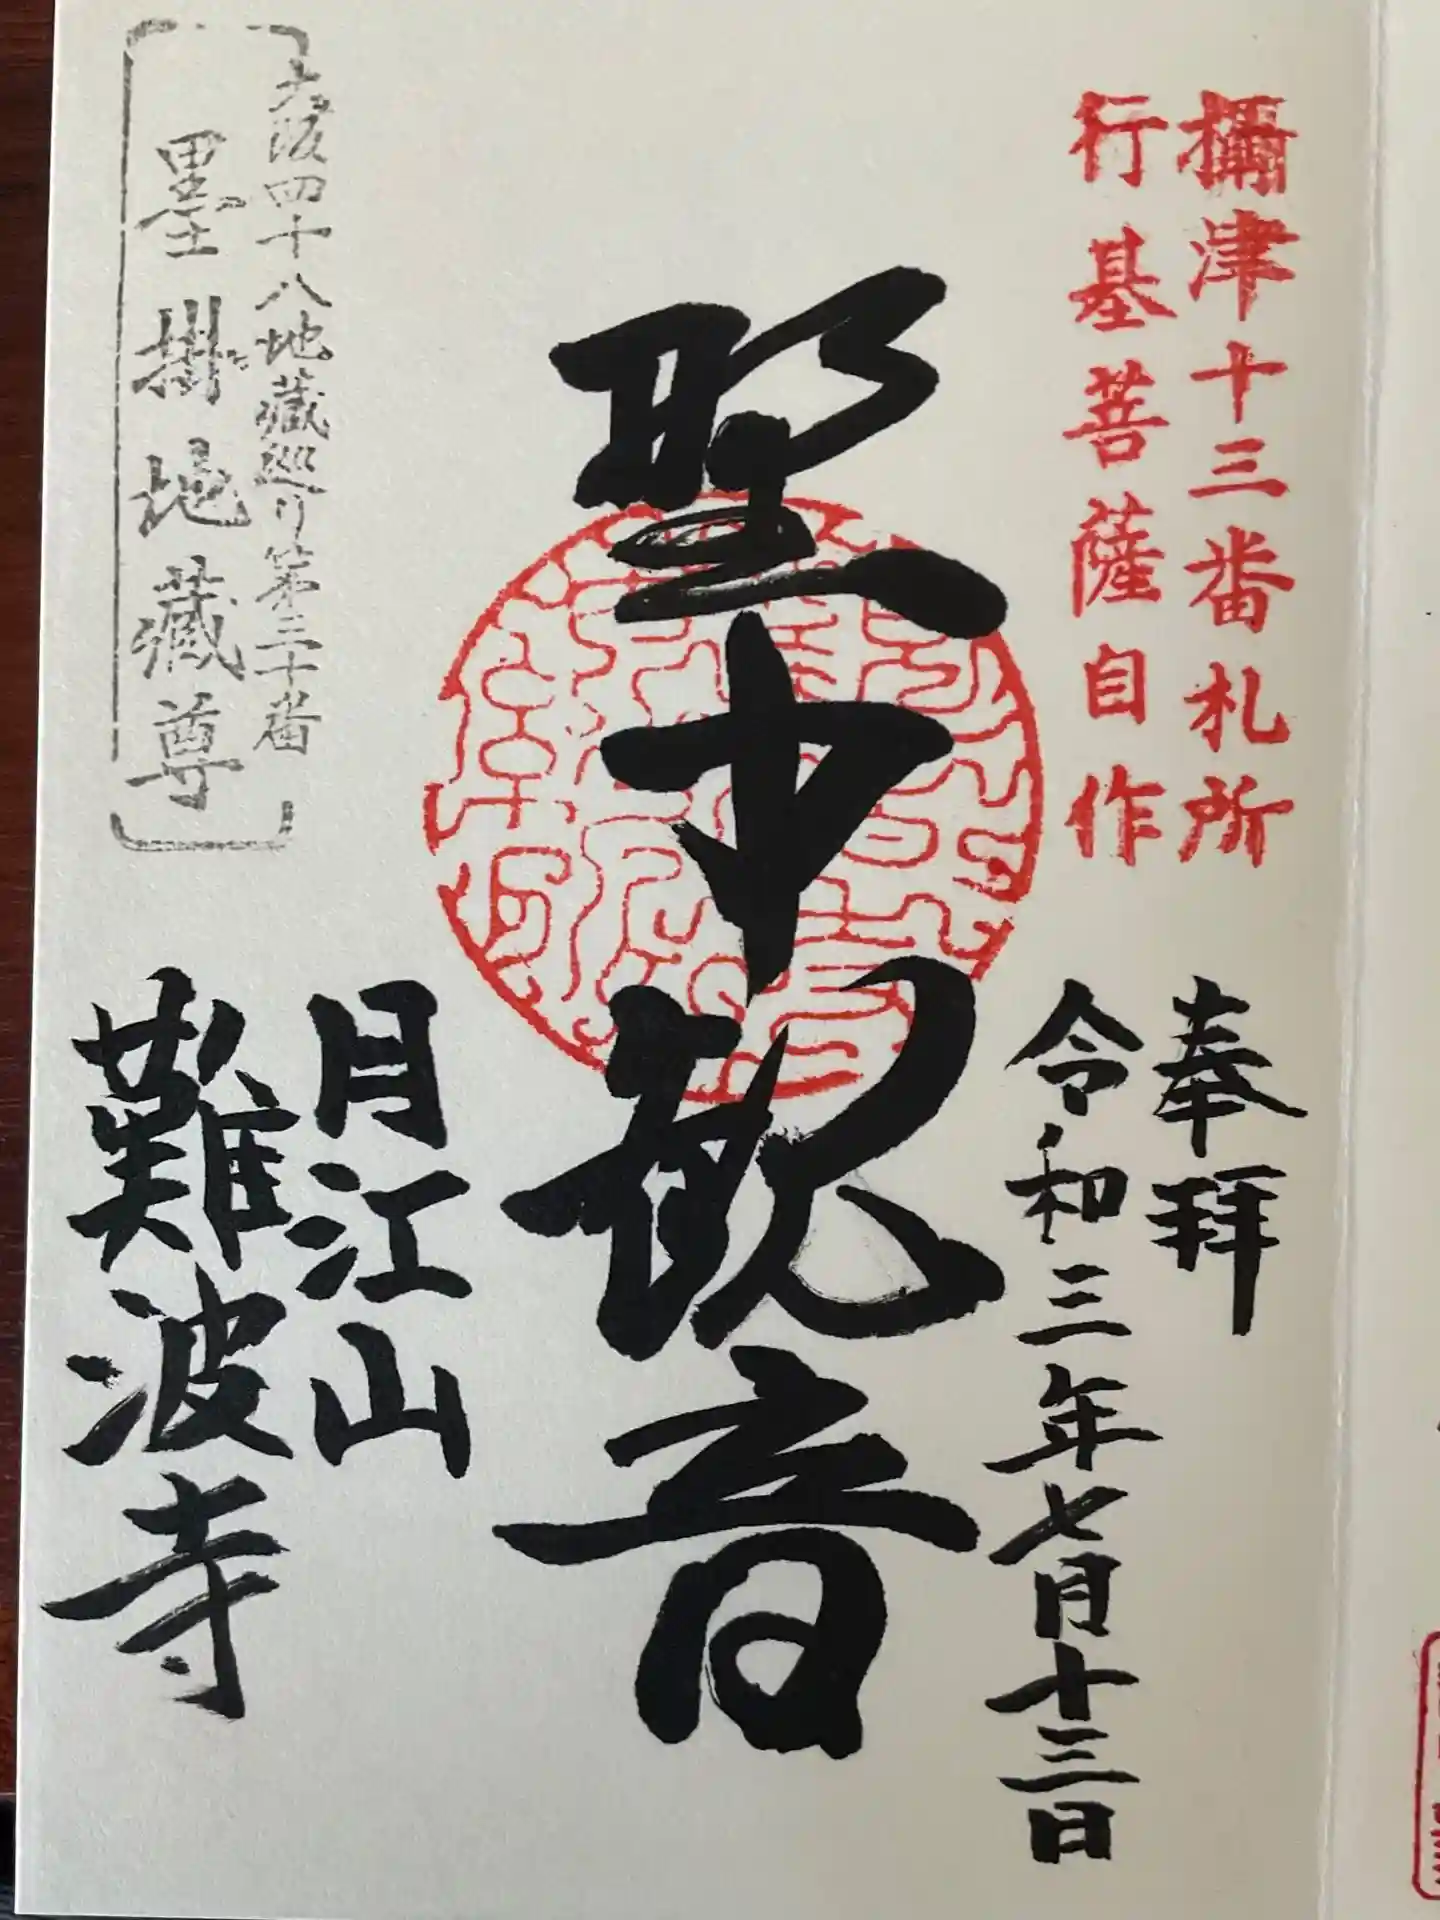 攝津十三番札所
行基菩薩自作
奉拜
令和三年七月十三日
聖中観音
大阪四十八地藏巡り第三十番
墨掛地藏尊
月江山
難波寺